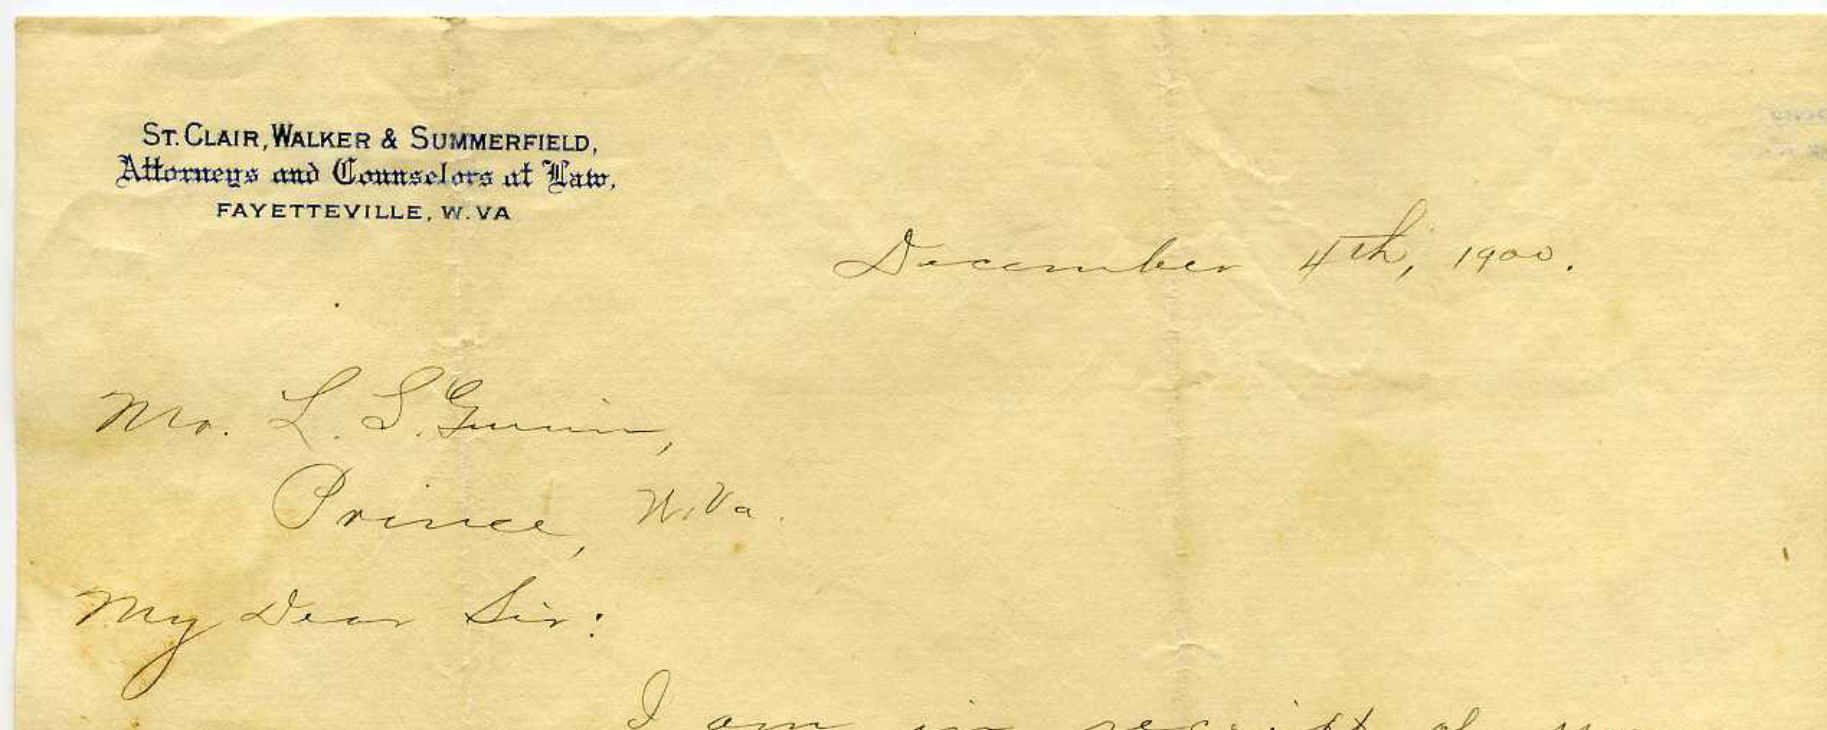 ST. CLAIR, WALKER & SUMMERFIELD,
Attorneys and Counselors at Law,
FAYETTEVILLE, W. VA
December 4th, 1900.
Mr. L. S. Gwinn,
Prince, W. Va.
My Dear Sir:
I am in receipt of